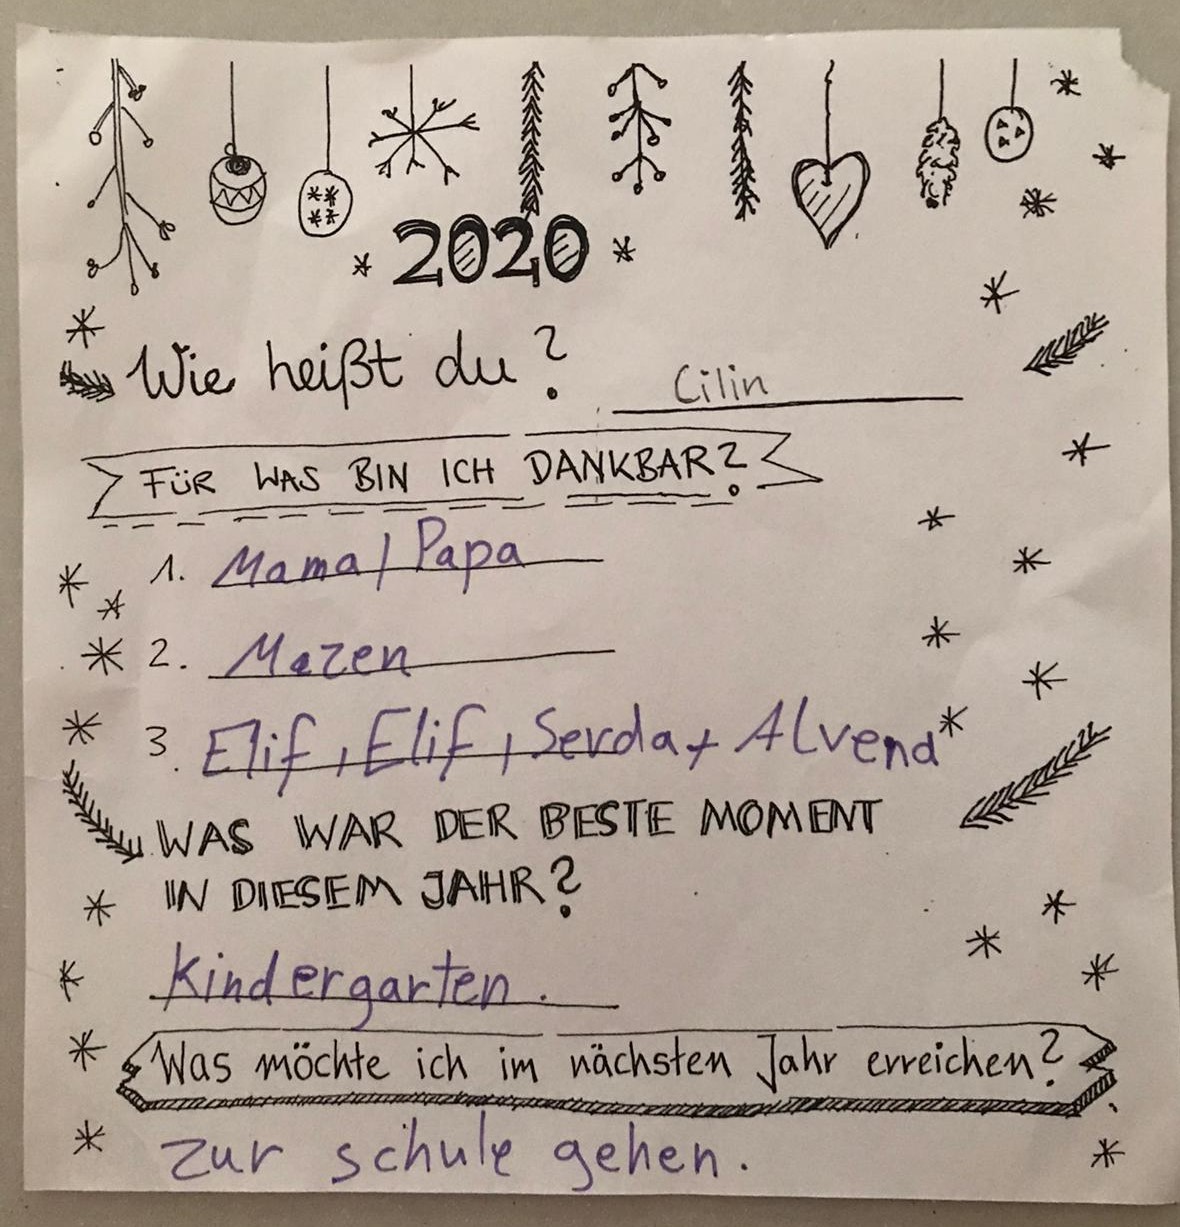 2020
Wie heißt du? Cilin
FÜR WAS BIN ICH DANKBAR?
1. Mama/Papa
2. Mazen
3. Elif, Elif, Serda + Alvend
WAS WAR DER BESTE MOMENT
IN DIESEM JAHR?
Kindergarten.
Was möchte ich im nächsten Jahr erreichen?
zur schule gehen.